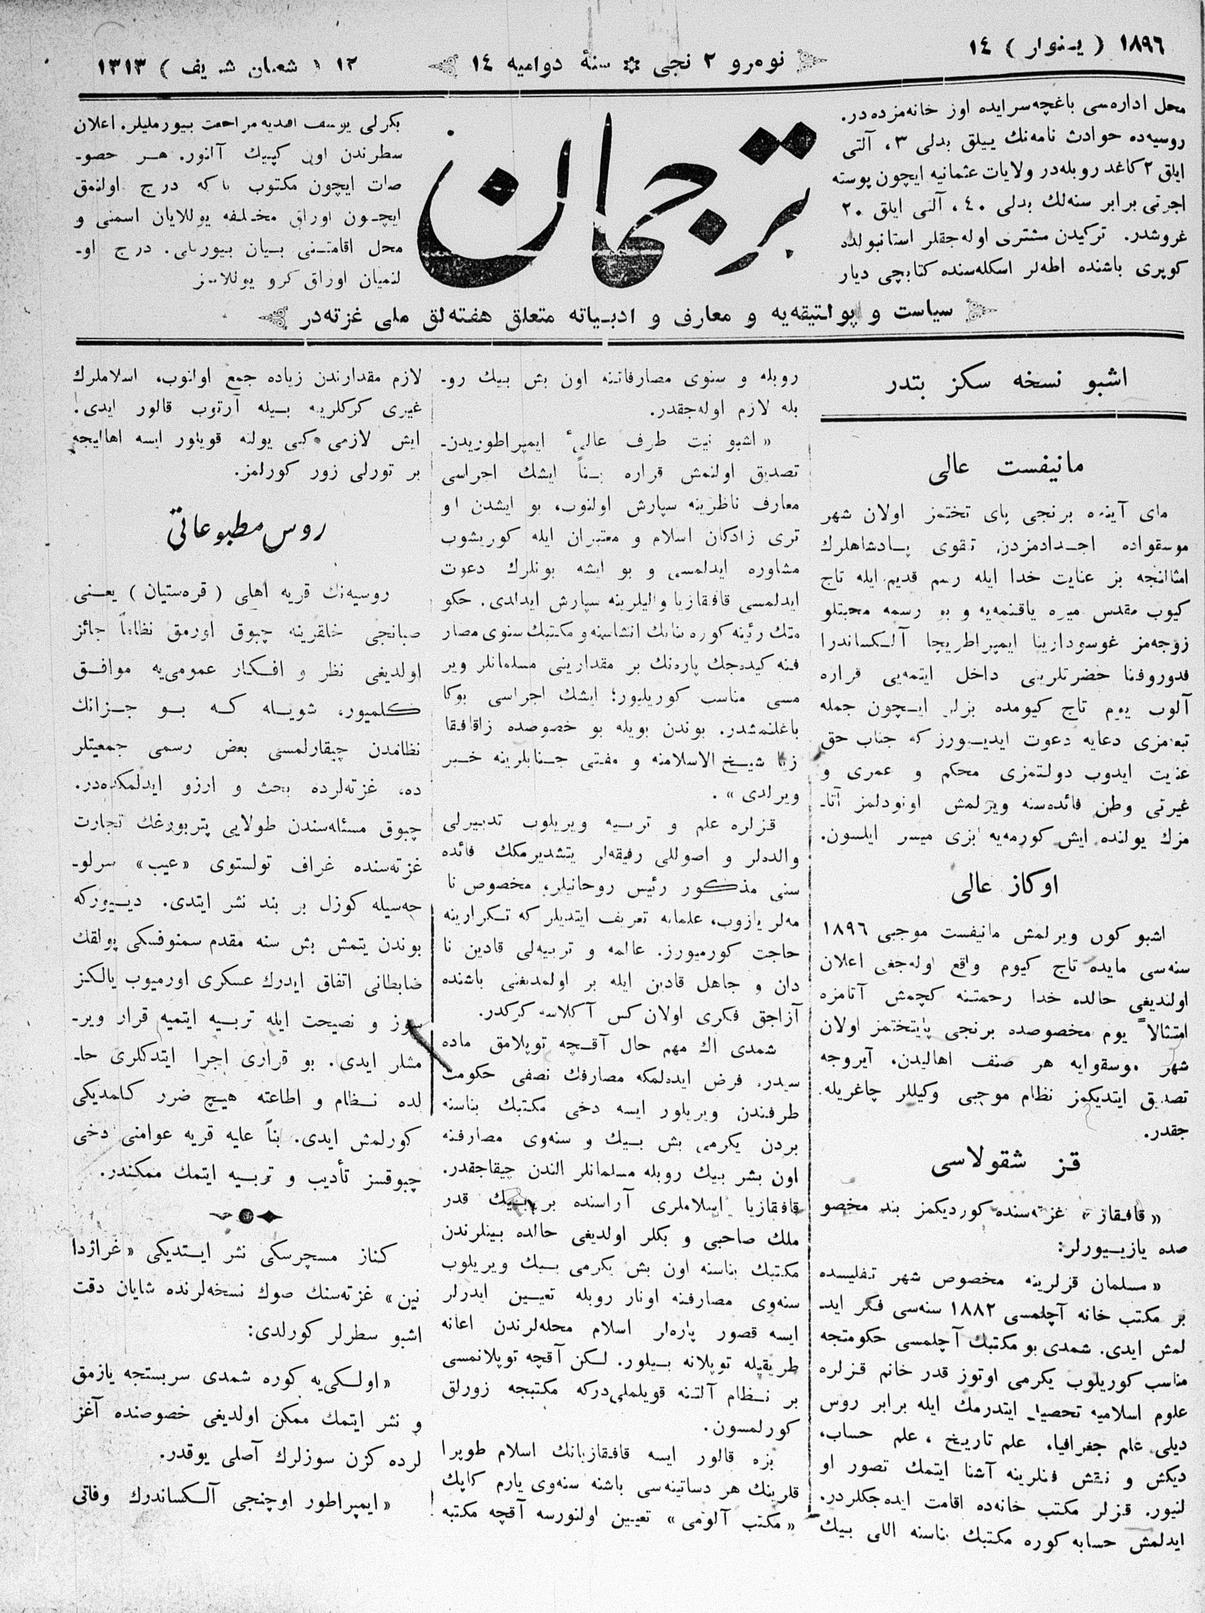 ١٨٩٦ ( ینوار ) ١٤
نومرو ٢ نجی ✲ سنهٔ دوامیه ١٤
١٢ ( شعبان شریف ) ١٣١٣
محل اداره‌سی باغچه‌سرایده اوز خانه‌مزده‌در.
روسیه‌ده حوادث نامه‌نك ییلق بدلی ٣، آلتی
ایلق ٢ كاغد روبله‌در ولایات عثمانیه ایچون پوسته
اجرتی برابر سنه‌لك بدلی ٤٠، آلتی ایلق ٢٠
غروشدر. تركیدن مشتری اوله‌جقلر استانبولده
كوپری باشنده اطه‌لر اسكله‌سنده كتابچی دیار
ترجمان
بكرلی یوسف افندیه مراجعت بیورملیلر. اعلان
سطرندن اون كپیك آلنور. هر خصو-
صات ایچون مكتوب یازكه درج اولنمق
ایچون اوراق مختلفه یوللایان اسمنی و
محل اقامتنی بیان بیورملی. درج او-
لنمیان اوراق كرو یوللانمز
سیاست و پولتیقه‌یه و معارف و ادبیاته متعلق هفته‌لق ملی غزته‌در
اشبو نسخه سكز بتدر
مانیفست عالی
مای آینده برنجی پای تختمز اولان شهر
موسقواده اجدادمزدن تقوی پادشاهلرك
امثالنجه بز عنایت خدا ایله رسم قدیم ایله تاج
كیوب مقدس میره یاقنمه‌یه و بو رسمه محبتلو
زوجه‌مز غوسودارینا ایمپراطریچا آلكساندرا
فدوروفنا حضرتلرینی داخل ایتمه‌یی قراره
آلوب یوم تاج كیومده بزلر ایچون جمله
تبعه‌مزی دعایه دعوت ایدیورزكه جناب حق
عنایت ایدوب دولتمزی محكم و عمری و
غیرتی وطن فائده‌سنه ویرلمش اونودلمز آتا-
مزك یولنده ایش كورمه‌یه ابزی میسر ایلسون.
اوكاز عالی
اشبو كون ویرلمش مانیفست موجبی ١٨٩٦
سنه‌سی مایده تاج كیوم واقع اوله‌جغی اعلان
اولندیغی حالده خدا رحمتنه كچمش آتامزه
امتثالاً یوم مخصوصده برنجی پایتختمز اولان
شهر موسقوایه هر صنف اهالیدن، آیروجه
تصدیق ایتدیكمز نظام موجبی وكیللر چاغریله-
جقدر.
قز شقولاسی
«قافقاز» غزته‌سنده كوردیكمز بند مخصو
صده یازییورلر:
«مسلمان قزلرینه مخصوص شهر تفلیسده
بر مكتب خانه آچلمسی ١٨٨٢ سنه‌سی فكر اید-
لمش ایدی. شمدی بو مكتبك آچلمسی حكومتجه
مناسب كوریلوب یكرمی اوتوز قدر خانم قزلره
علوم اسلامیه تحصیل ایتدرمك ایله برابر روس
دیلی، علم جغرافیا، علم تاریخ، علم حساب،
دیكش و نقش فنلرینه آشنا ایتمك تصور او
لنیور. قزلر مكتب خانه‌ده اقامت ایده‌جكلردر.
ایدلمش حسابه كوره مكتبك بناسنه اللی بیك
روبله و سنوی مصارفاتنه اون بش بیك رو-
بله لازم اوله‌جقدر.
«اشبو نیت طرف عالیٔ ایمپراطوریدن
تصدیق اولنمش قراره بناً ایشك اجراسی
معارف ناظرینه سپارش اولنوب، بو ایشدن او
تری زادكان اسلام و معتبران ایله كوریشوب
مشاوره ایدلمسی و بو ایشه بونلرك دعوت
ایدلمسی قافقازیا والیلرینه سپارش ایدلدی. حكو
متك رئینه كوره بنانك انشاسنه و مكتبك سنوی مصار
فنه كیده‌جك پاره‌نك بر مقدارینی مسلمانلر ویر
مسی مناسب كوریلیور؛ ایشك اجراسی بوكا
باغلنمشدر. بوندن بویله بو خصوصده زاقافقا
زیا شیخ الاسلامنه و مفتی جنابلرینه خبر
ویرلدی».
قزلره علم و تربیه ویریلوب تدبیرلی
والده‌لر و اصوللی رفیقه‌لر یتشدیرمكك فائده
سنی مذكور رئیس روحانیلر، مخصوص نا
مه‌لر یازوب، علمایه تعریف ایتدیلركه تكرارینه
حاجت كورمیورز. عالمه و تربیه‌لی قادین نا
دان و جاهل قادین ایله بر اولمدیغنی باشنده
آزاجق فكری اولان كس آكلاسه كركدر.
شمدی اك مهم حال آقچه توپلامق ماده
سیدر. فرض ایده‌لمكه مصارفك نصفی حكومت
طرفندن ویریلور ایسه دخی مكتبك بناسنه
بردن یكرمی بش بیك و سنه‌وی مصارفنه
اون بشر بیك روبله مسلمانلر الندن چیقاجقدر.
قافقازیا اسلاملری آراسنده بر بیك قدر
ملك صاحبی و بكلر اولدیغی حالده بینلرندن
مكتبك بناسنه اون بش یكرمی بیك ویریلوب
سنه‌وی مصارفنه اونار روبله تعیین ایدرلر
ایسه قصور پاره‌لر اسلام محله‌لرندن اعانه
طریقیله توپلانه بیلور. لكن آقچه توپلانمسی
بر نظام آلتنه قویلملی‌دركه مكتبجه زورلق
كورلمسون.
بزه قالور ایسه قافقازیانك اسلام طوپرا
قلرینك هر دساتینه‌سی باشنه سنه‌وی یارم كاپك
«مكتب آلومی» تعیین اولنورسه آقچه مكتبه
لازم مقدارندن زیاده جمع اولنوب، اسلاملرك
غیری كركلرینه بیله آرتوب قالور ایدی.
ایش لازمی كبی یولنه قویلور ایسه اهالیجه
بر تورلی زور كورلمز.
روس مطبوعاتی
روسیه‌نك قریه اهلی (قره‌ستیان) یعنی
صبانجی خلقرینه چبوق اورمق نظاماً جائز
اولدیغی نظر و افكار عمومی‌یه موافق
كلمیور، شویله كه بو جزانك
نظامدن چیقارلمسی بعض رسمی جمعیتلر
ده، غزته‌لرده بحث و ارزو ایدلمكده‌در.
چبوق مسئله‌سندن طولایی پتربورغك تجارت
غزته‌سنده غراف تولستوی «عیب» سرلو-
حه‌سیله كوزل بر بند نشر ایتدی. دییوركه
بوندن یتمش بش سنه مقدم سمنوفسكی پولقك
ضابطانی اتفاق ایدرك عسكری اورمیوب یالكز
سوز و نصیحت ایله تربیه ایتمیه قرار ویر-
مشلر ایدی. بو قراری اجرا ایتدكلری حا-
لده نظام و اطاعته هیچ ضرر كلمدیكی
كورلمش ایدی. بناً علیه قریه عوامنی دخی
چبوقسز تأدیب و تربیه ایتمك ممكندر.
كناز مسچرسكی نشر ایتدیكی «غراژدا
نین» غزته‌سنك صوك نسخه‌لرنده شایان دقت
اشبو سطرلر كورلدی:
«اولكی‌یه كوره شمدی سربستجه یازمق
و نشر ایتمك ممكن اولدیغی خصوصنده آغز
لرده كزن سوزلرك آصلی یوقدر.
«ایمپراطور اوچنجی آلكساندرك وفاتی